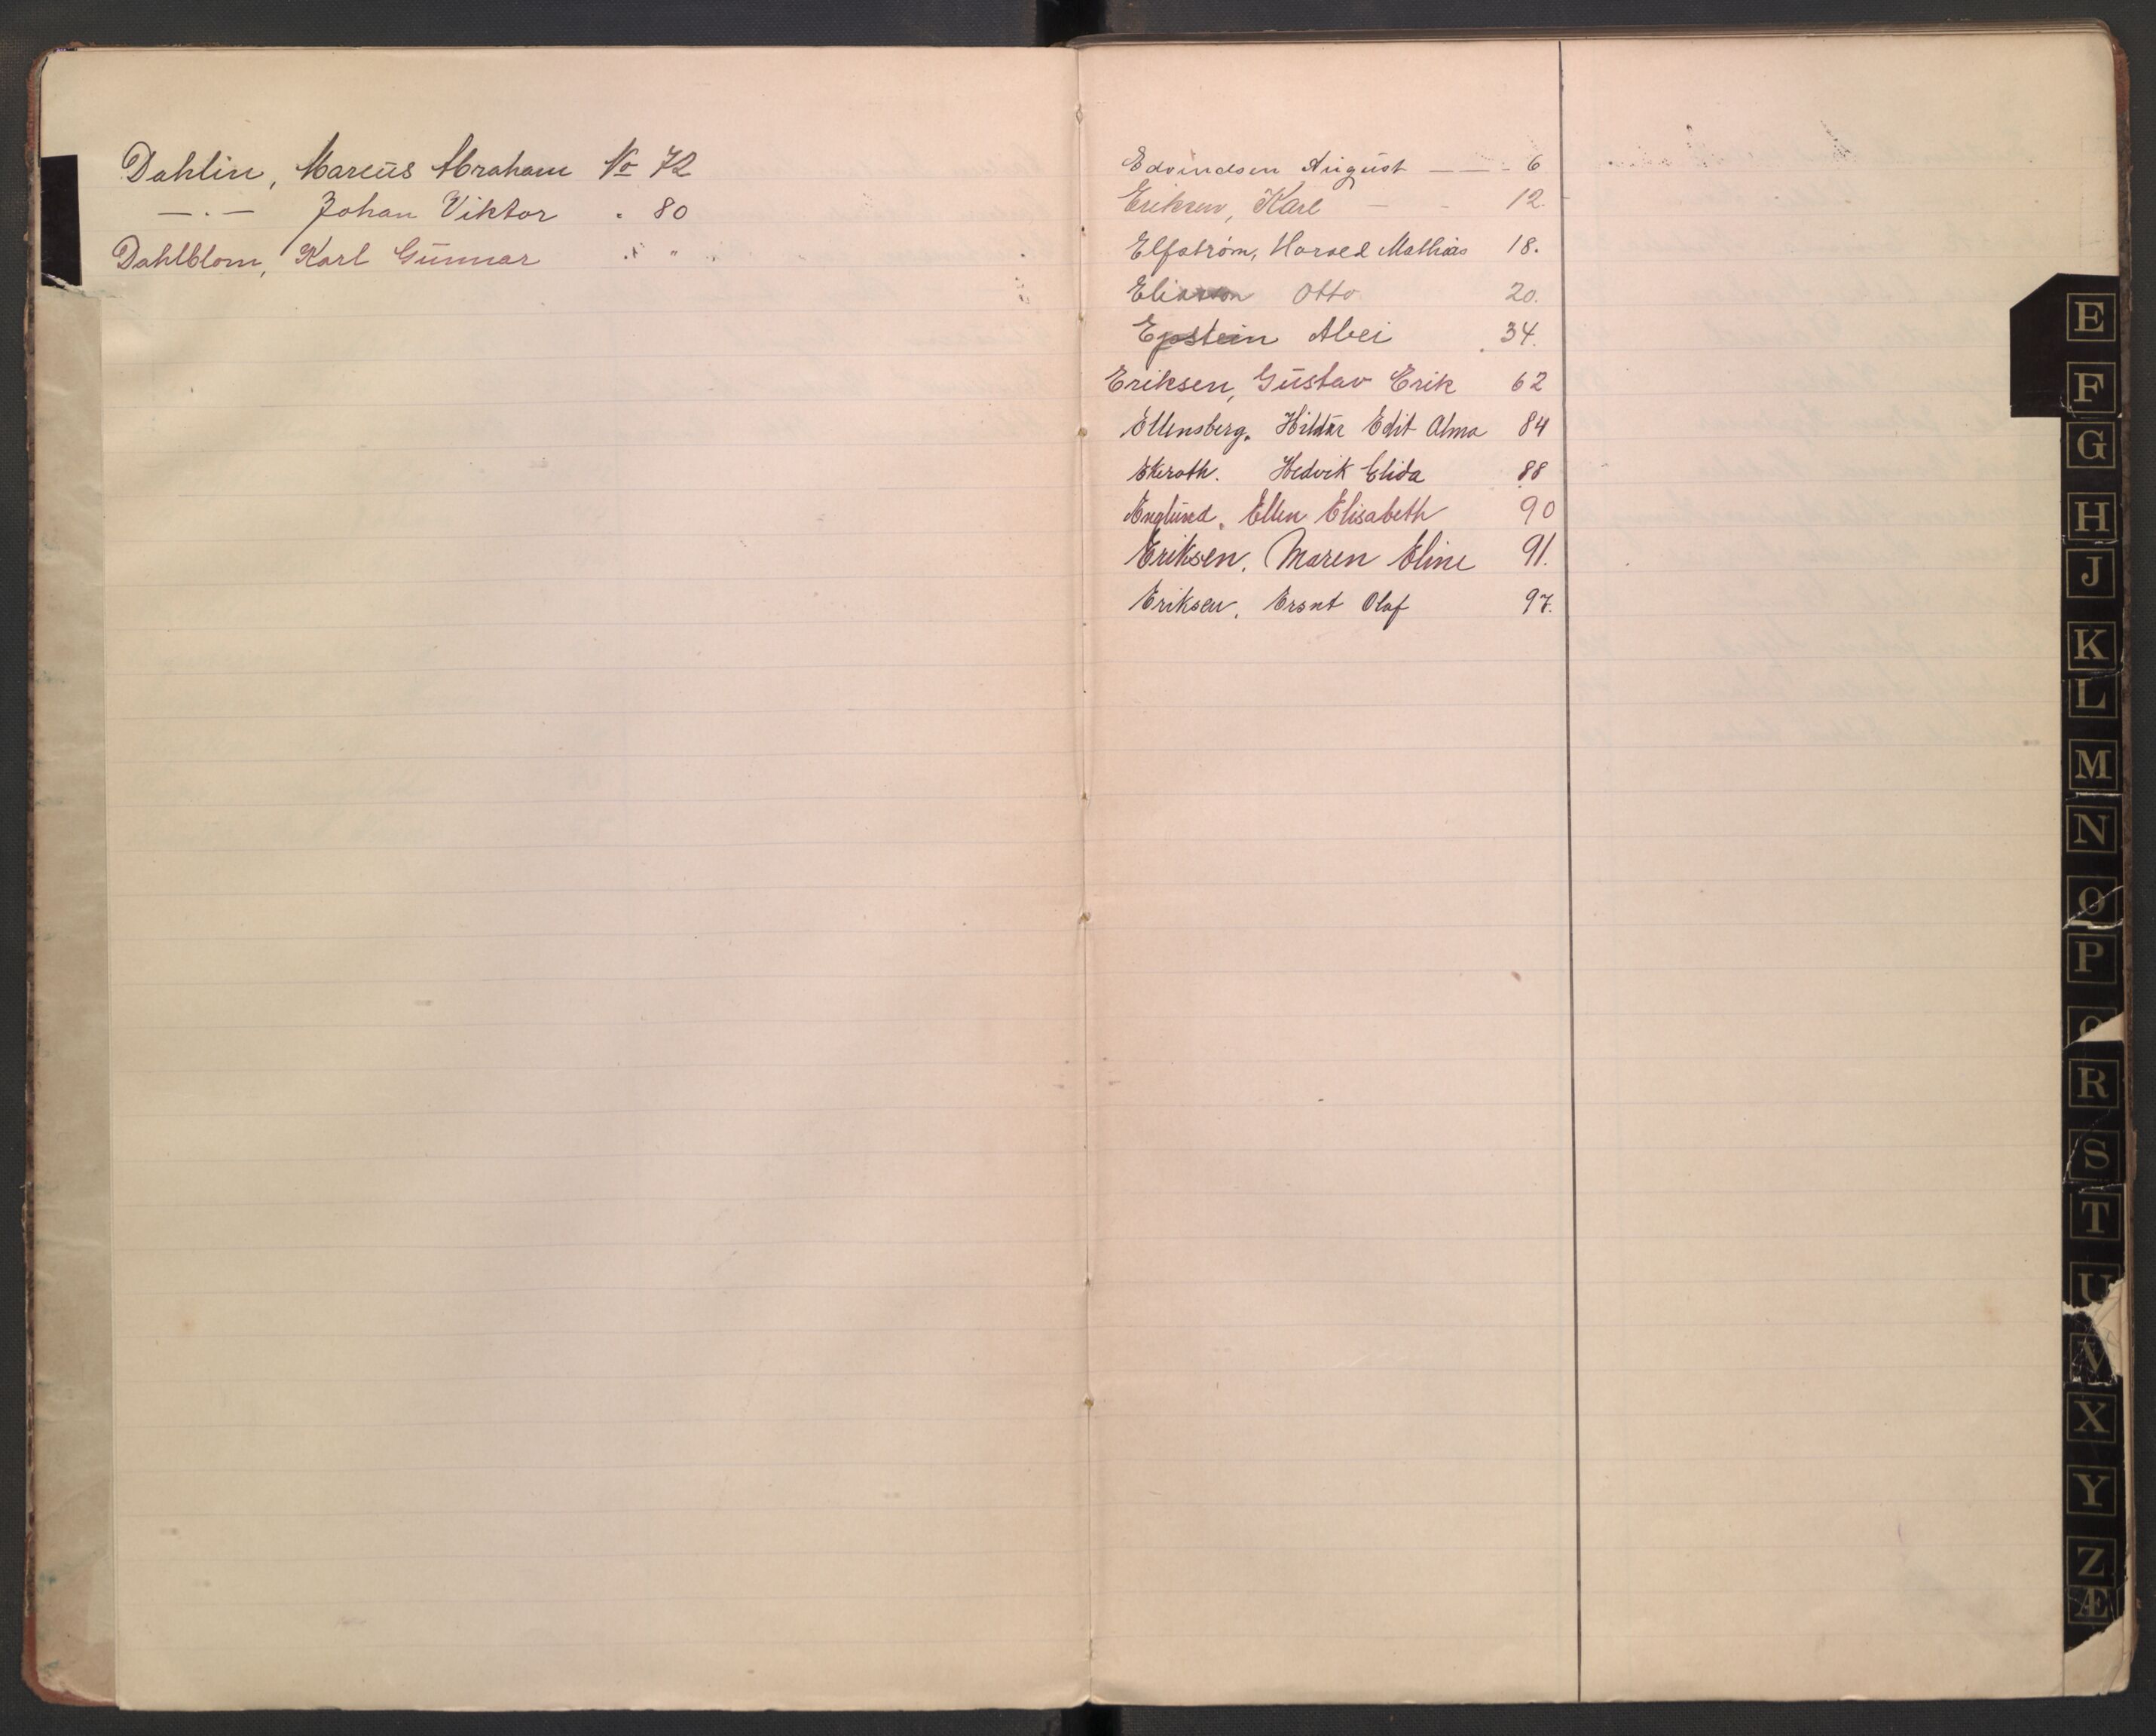 Dahlin, Marcus Abraham No 72
—.— Johan Viktor " 80
Dahlblom, Karl Gunnar " "
Edvindsen August — — - 6
Eriksen, Karl - - 12.
Elfstrøm, Harald Mathias 18.
Eliason Otto 20.
Epstein Abei 34.
Eriksen, Gustav Erik 62
Ellensberg. Hildur Edit Alma 84
Ekeroth. Hedvik Elida 88
Englund, Ellen Elisabeth 90
Eriksen, Maren Eline 91.
Eriksen, Ersnt Olaf 97.
E
F
G
H
J
K
L
M
N
O
P
R
S
T
U
V
X
Y
Z
Æ